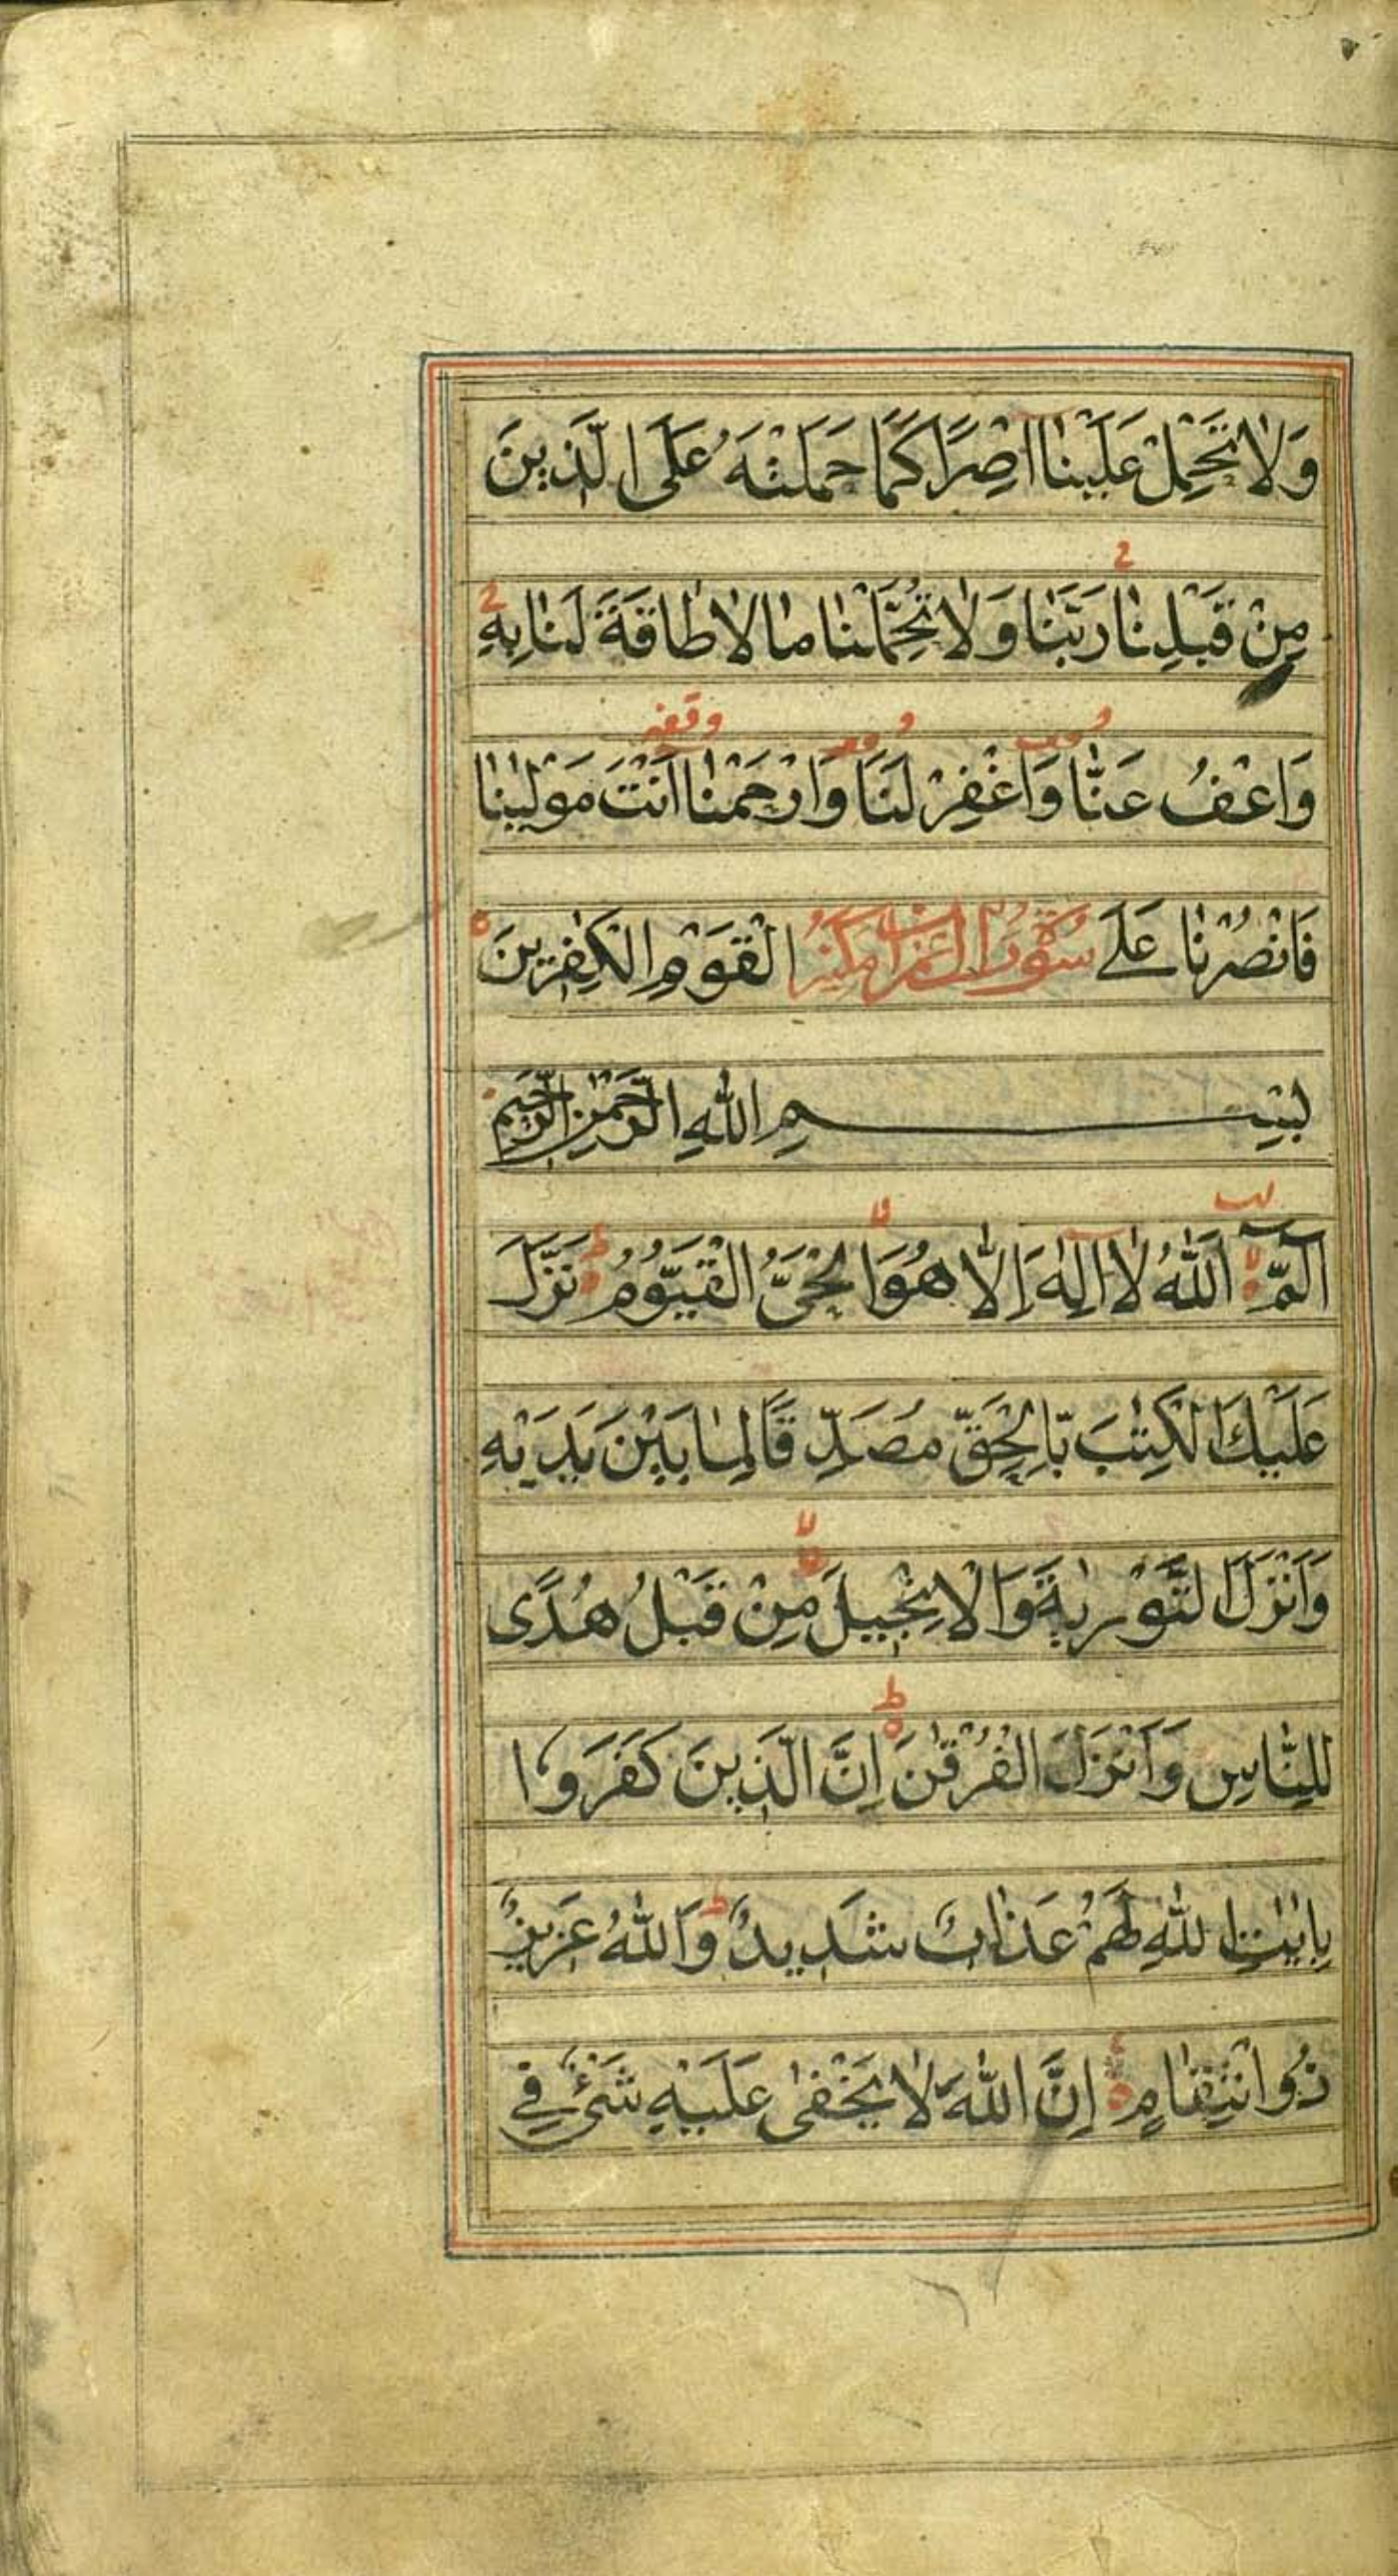 وَلَا تَحْمِلْ عَلَيْنَا اِصْرًا كَمَا حَمَلْتَهُ عَلَى الَّذِينَ
مِنْ قَبْلِنَا رَبَّنَا وَلَا تُحَمِّلْنَا مَا لَا طَاقَةَ لَنَا بِهِ
وَاعْفُ عَنَّا وَاغْفِرْ لَنَا وَارْحَمْنَا اَنْتَ مَوْلٰينَا
فَانْصُرْنَا عَلَے سُوْرَة اٰل عمران مدنية الْقَوْمِ الْكٰفِرِينَ
بِسْمِ اللّٰهِ الرَّحْمٰنِ الرَّحِيمِ
الٓمّٓ اَللّٰهُ لَا اِلٰهَ اِلَّا هُوَ الْحَىُّ الْقَيُّوْمُ نَزَّلَ
عَلَيْكَ الْكِتٰبَ بِالْحَقِّ مُصَدِّقًا لِمَا بَيْنَ يَدَيْهِ
وَاَنْزَلَ التَّوْرٰيةَ وَالْاِنْجِيلَ مِنْ قَبْلُ هُدًى
لِلنَّاسِ وَاَنْزَلَ الْفُرْقٰنَ اِنَّ الَّذِينَ كَفَرُوا
بِاٰيٰتِ اللّٰهِ لَهُمْ عَذَابٌ شَدِيدٌ وَاللّٰهُ عَزِيزٌ
ذُو انْتِقَامٍ اِنَّ اللّٰهَ لَا يَخْفٰى عَلَيْهِ شَىْءٌ فِے